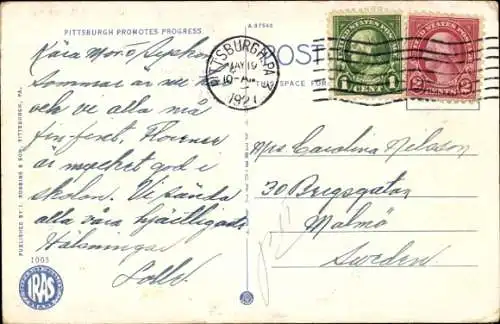 PITTSBURGH PROMOTES PROGRESS.
A-97545
Kära Mor o Syskon
Sommar är
och vi alla må
fin fint.
är mycket god i
skolan. Vi sända
alla våra hjärtligaste
Hälsningar
1003
IRAS
PUBLISHED BY I. ROBBINS & SON, PITTSBURGH, PA.
POST
THIS SPACE FOR
PITTSBURGH, PA.
10-AM
UNITED STATES POSTAGE
1 CENT 1
UNITED STATES POSTAGE
2 CENTS 2
Mrs Carolina Nilsson
30 Bregsgatan
Malmö
Sweden